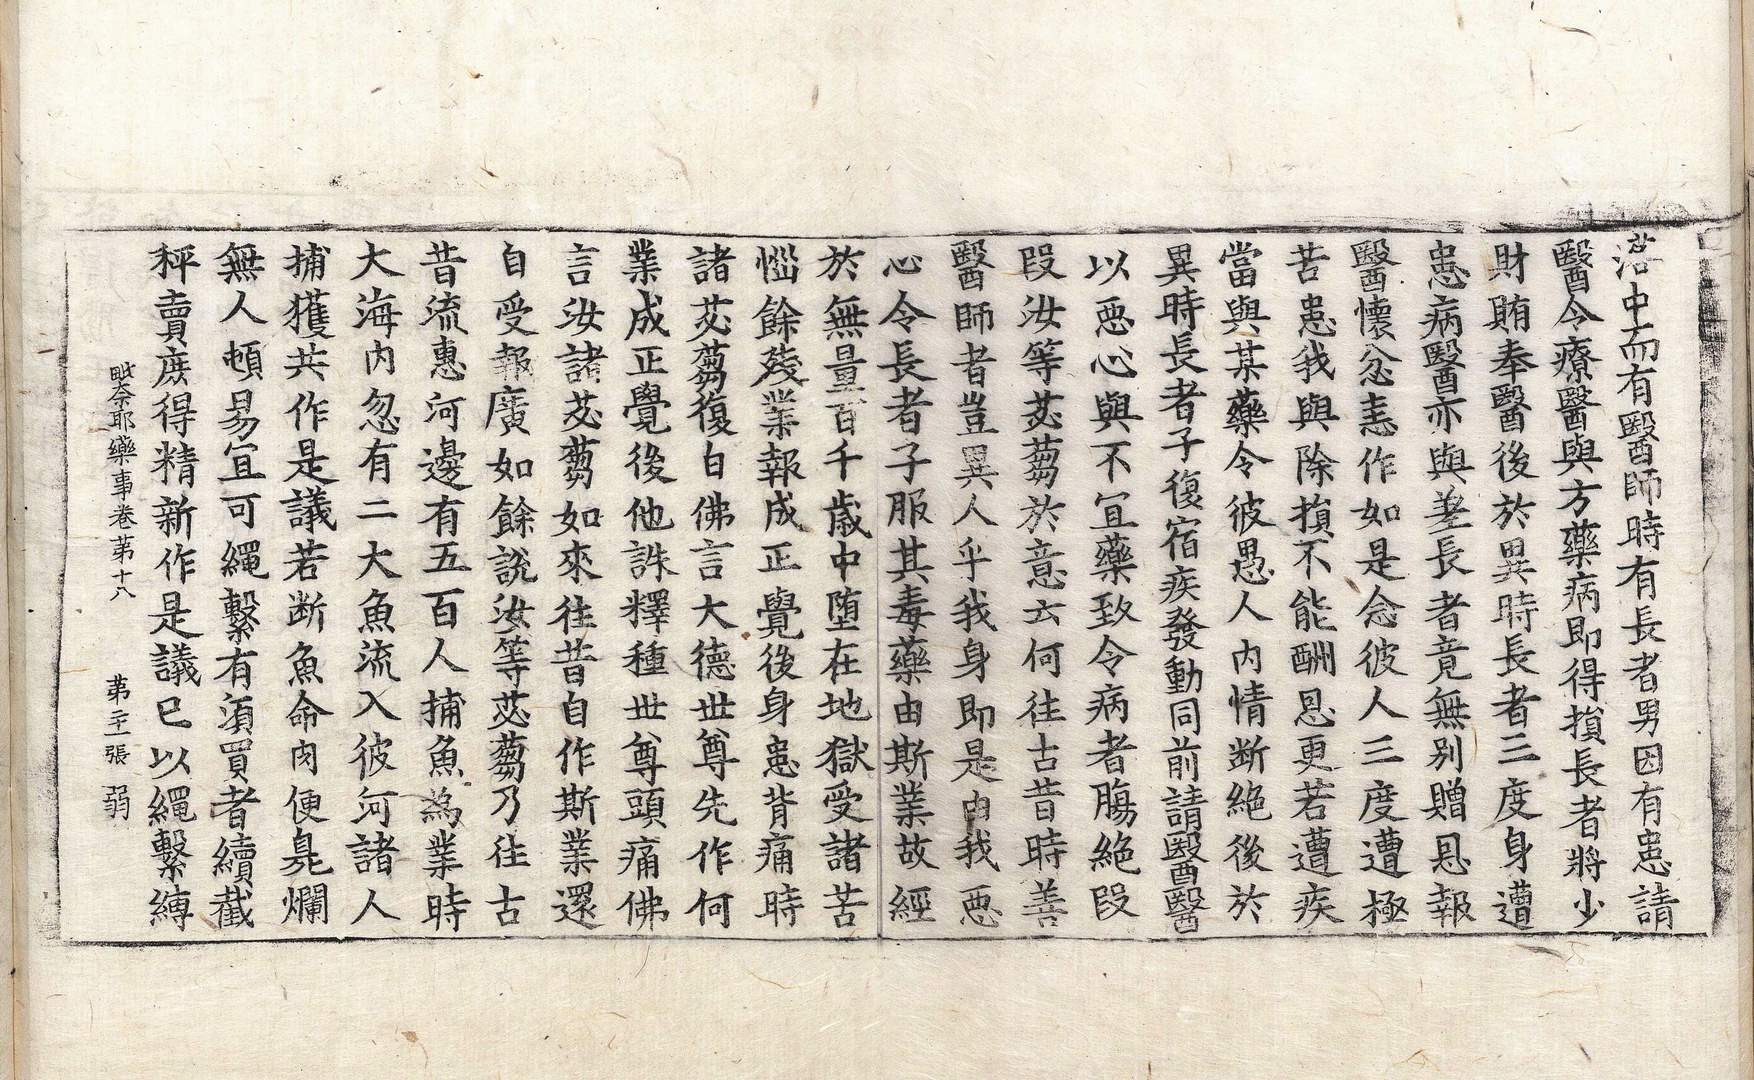 落中而有醫師時有長者男因有患請
醫令療醫與方藥病即得損長者將少
財賄奉醫後於異時長者三度身遭
患病醫亦與差長者竟無別贈恩報
醫懷忿恚作如是念彼人三度遭極
苦患我與除損不能酬恩更若遭疾
當與某藥令彼愚人內情断絶後於
異時長者子復宿疾發動同前請醫醫
以惡心與不宜藥致令病者腸絶段
段汝等苾蒭於意云何往古昔時善
醫師者豈異人乎我身即是由我惡
心令長者子服其毒藥由斯業故經
於無量百千歲中堕在地獄受諸苦
惱餘殘業報成正覺後身患背痛時
諸苾蒭復白佛言大德世尊先作何
業成正覺後他誅釋種世尊頭痛佛
言汝諸苾蒭如來往昔自作斯業還
自受報廣如餘說汝等苾蒭乃往古
昔流惠河邊有五百人捕魚為業時
大海內忽有二大魚流入彼河諸人
捕獲共作是議若断魚命肉便臭爛
無人頓易宜可繩繫有須買者續截
秤賣庶得精新作是議已以繩繫縛
毗奈耶藥事卷第十八 第二十一張 弱